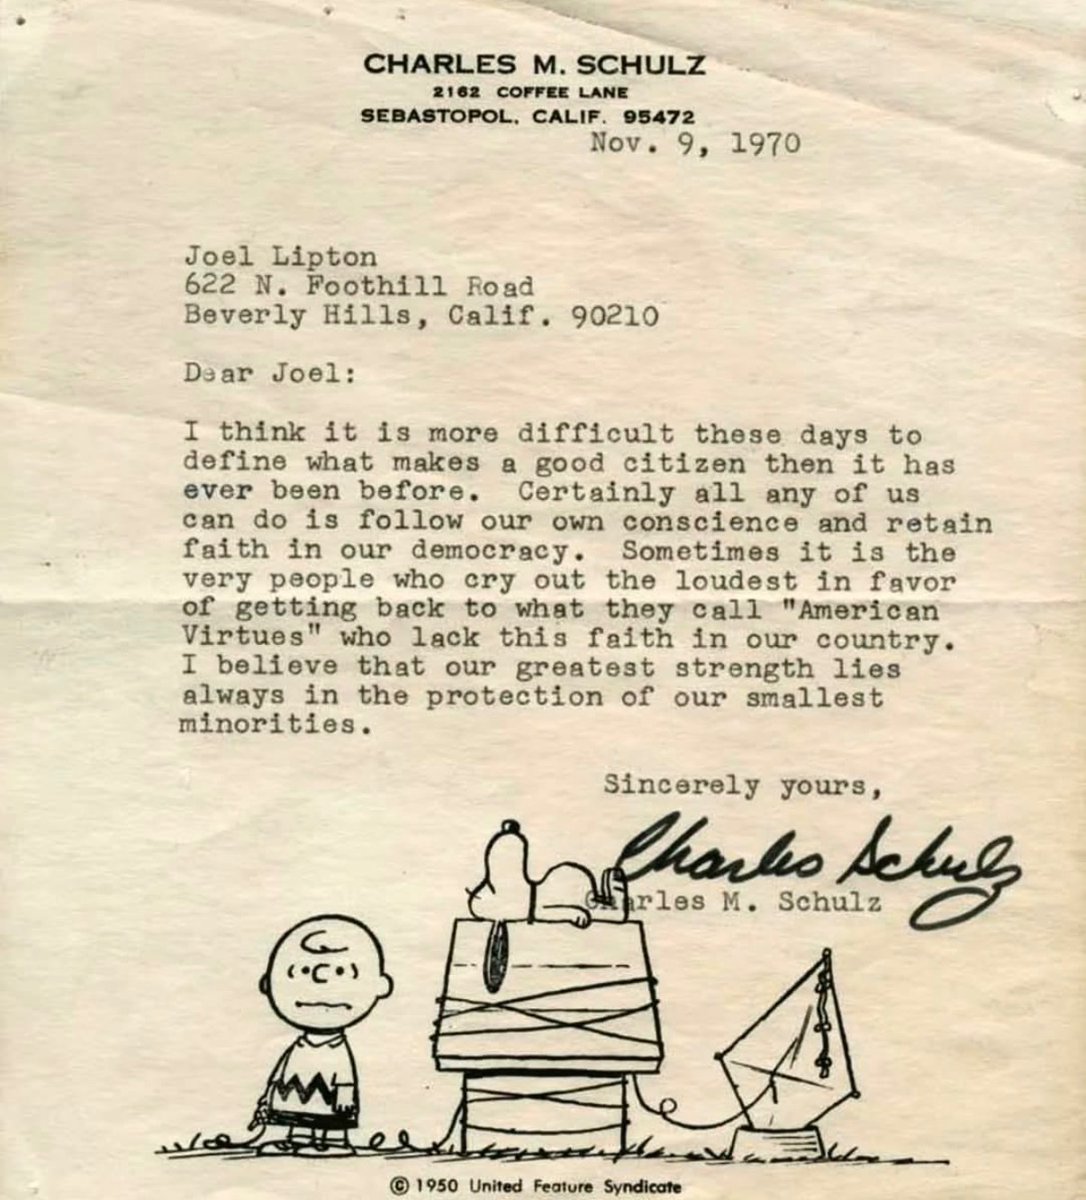 CHARLES M. SCHULZ
2162 COFFEE LANE
SEBASTOPOL, CALIF. 95472
Nov. 9, 1970
Joel Lipton
622 N. Foothill Road
Beverly Hills, Calif. 90210
Dear Joel:
I think it is more difficult these days to
define what makes a good citizen then it has
ever been before.  Certainly all any of us
can do is follow our own conscience and retain
faith in our democracy.  Sometimes it is the
very people who cry out the loudest in favor
of getting back to what they call "American
Virtues" who lack this faith in our country.
I believe that our greatest strength lies
always in the protection of our smallest
minorities.
Sincerely yours,
Charles Schulz
Charles M. Schulz
© 1950 United Feature Syndicate